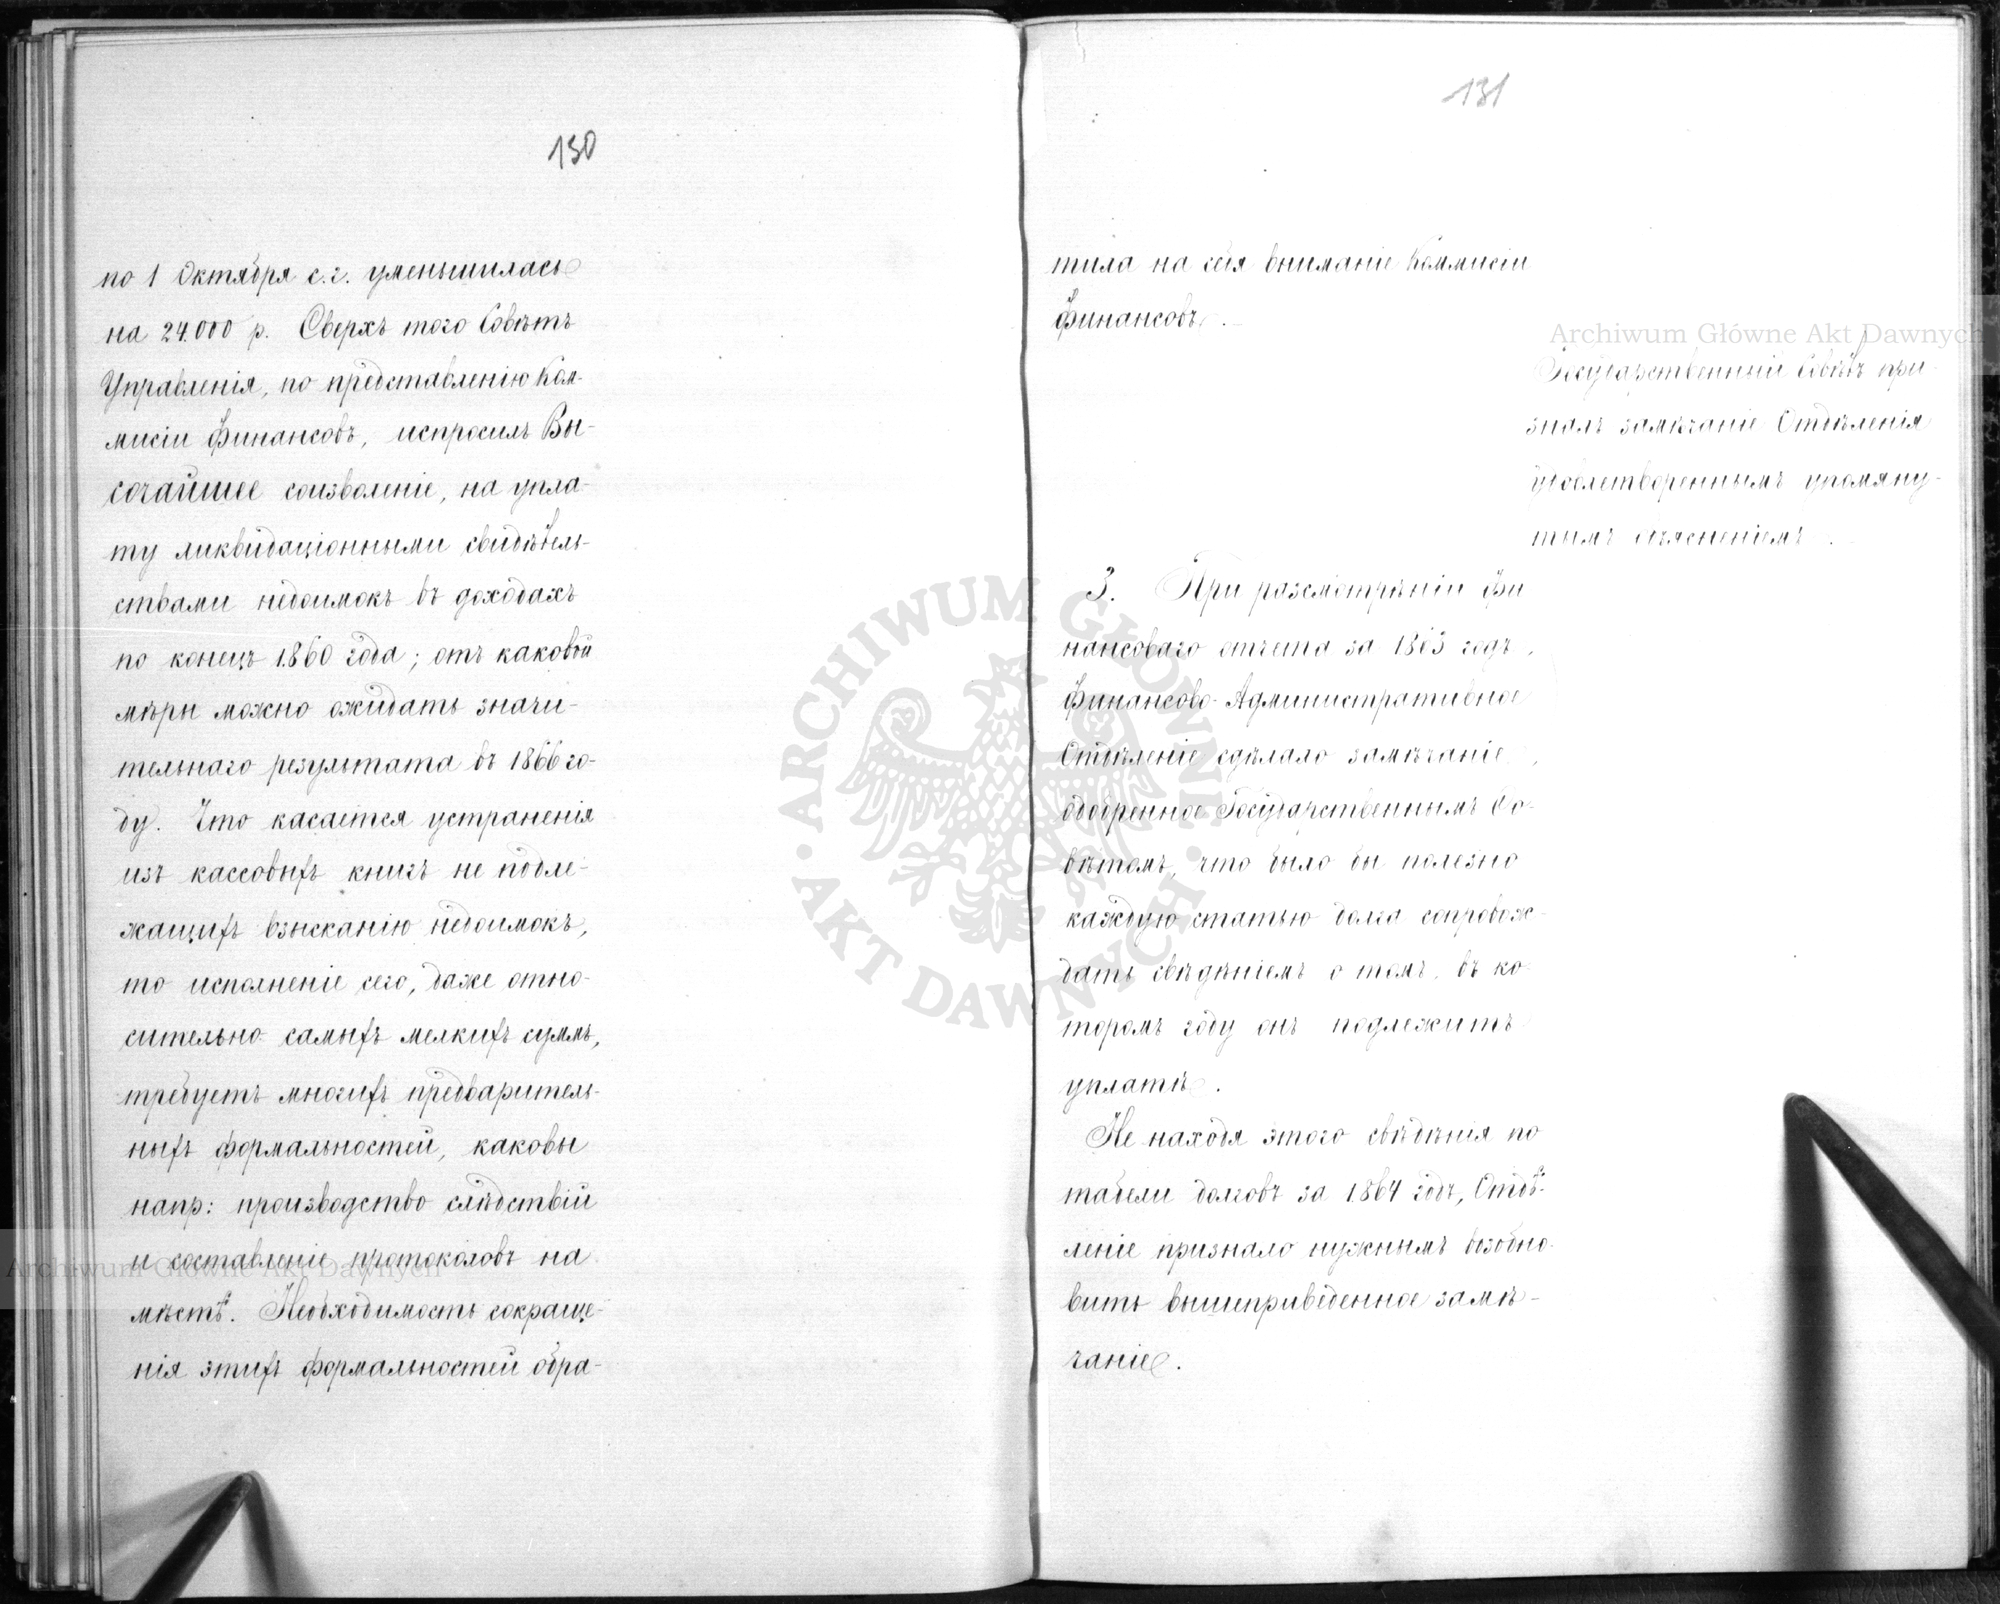 130
по 1 Октября с.г. уменьшилась
на 24.000 р. Сверхъ того Совѣтъ
Управленія, по представленію Ком-
мисіи Финансовъ, испросилъ Вы-
сочайшее соизволеніе, на упла-
ту ликвидаціонными свидѣтель-
ствами недоимокъ въ доходахъ
по конецъ 1860 года; отъ каковой
мѣры можно ожидать значи-
тельнаго результата въ 1866 го-
ду. Что касается устраненія
изъ кассовыхъ книгъ не подле-
жащихъ взысканію недоимокъ,
то исполненіе сего, даже отно-
сительно самыхъ мелкихъ суммъ,
требуетъ многихъ предваритель-
ныхъ формальностей, каковы
напр: производство слѣдствій
и составленіе протоколовъ на
мѣстѣ. Необходимость сокраще-
нія этихъ формальностей обра-
131
тила на себя вниманіе Коммисіи
Финансовъ.
Государственный Совѣтъ при-
зналъ замѣчаніе Отдѣленія
удовлетвореннымъ упомяну-
тымъ объясненіемъ.
3. При разсмотрѣніи Фи
нансоваго отчета за 1863 годъ,
Финансово-Административное
Отдѣленіе сдѣлало замѣчаніе,
одобренное Государственнымъ Со-
вѣтомъ, что было бы полезно
каждую статью долга сопровож-
дать свѣдѣніемъ о томъ, въ ко-
торомъ году онъ подлежитъ
уплатѣ.
Не находя этого свѣдѣнія по
табели долговъ за 1864 годъ, Отдѣ-
леніе признало нужнымъ возобно-
вить вышеприведенное замѣ-
чаніе.
Archiwum Główne Akt Dawnych
Archiwum Główne Akt Dawnych
ARCHIWUM GŁÓWNE · AKT DAWNYCH ·